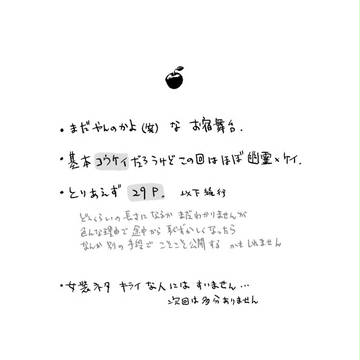 ・まだやんのかよ(笑) な お宿舞台.
・基本 コウケイ だろうけど この回は ほぼ 幽霊×ケイ.
・とりあえず 29P. 以下続行
どれくらいの長さになるか まだわかりませんが
色んな理由で 途中から 恥ずかしくなったら
なんか 別の手段で ことこと公開する かもしれません
・女装ネタ キライな人には すいません…
次回は多分ありません